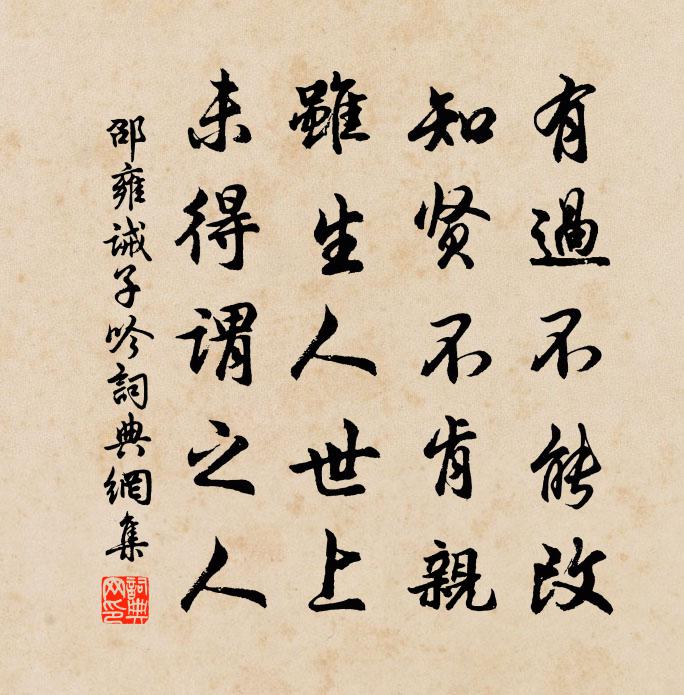 有過不能改
知贤不肯親
雖生人世上
未得謂之人
邵雍誡子吟詞典網集
詞典
网印